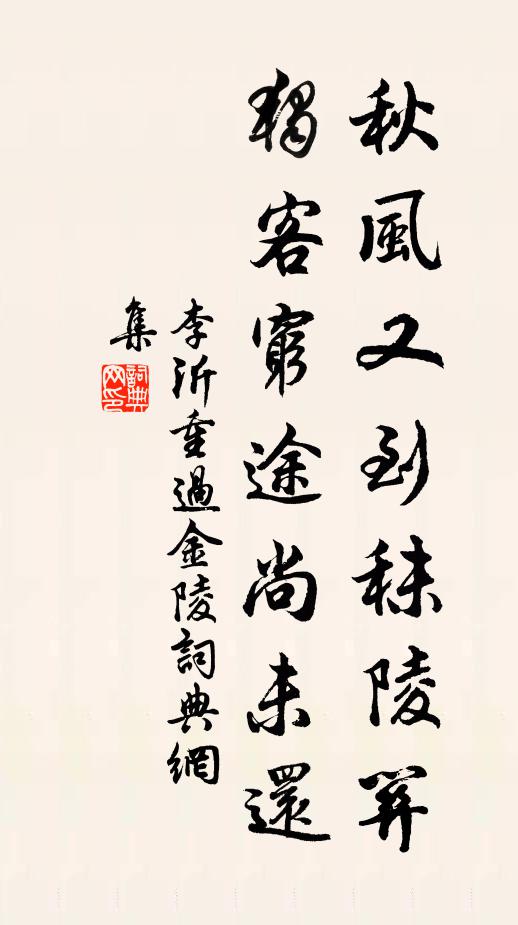 秋風又到秣陵關
獨客窮途尚未還
李沂重過金陵詞典網
集
詞典
网印